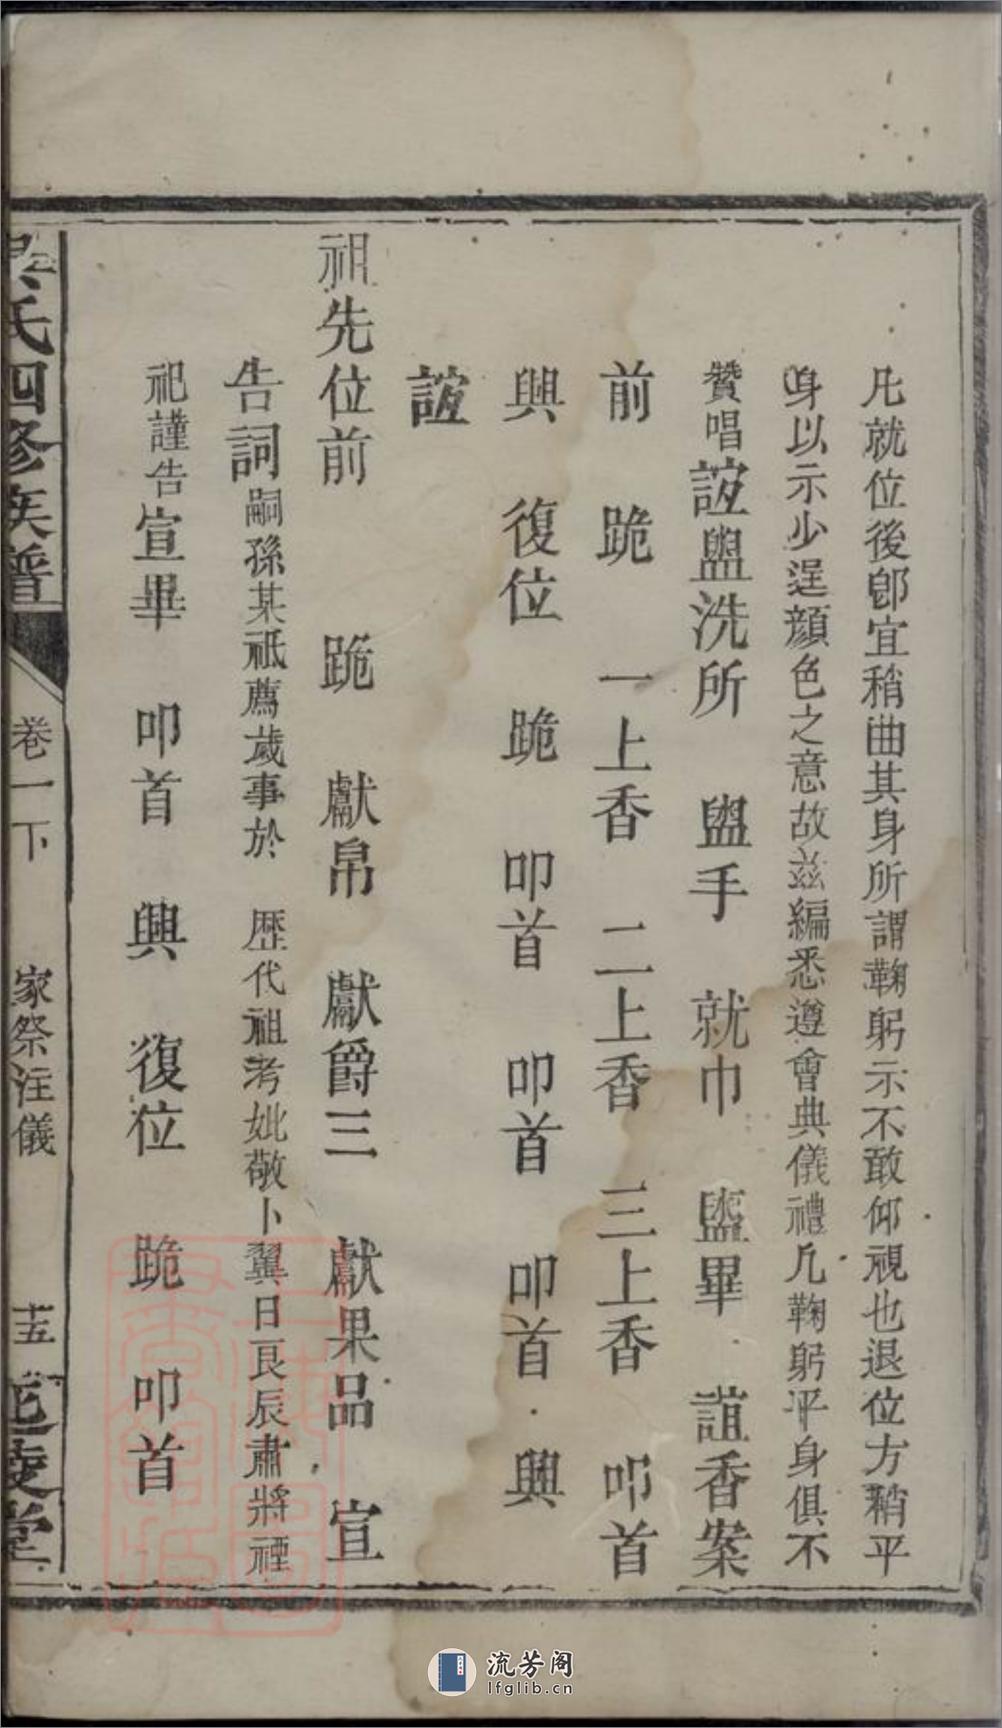 凡就位後卽宜稍曲其身所謂鞠躬示不敢仰視也退位方稍平
身以示少逞顔色之意故茲編悉遵會典儀禮凡鞠躬平身俱不
贊唱 詣盥洗所 盥手 就巾 盥畢 詣香案
前 跪 一上香 二上香 三上香 叩首
興 復位 跪 叩首 叩首 叩首 興
詣
祖先位前 跪 獻帛 獻爵三 獻果品 宣
告詞 嗣孫某祇薦歲事於 歷代祖考妣敬卜翼日良辰肅將禋
祀謹告 宣畢 叩首 興 復位 跪 叩首
氏四修族譜 卷一下 家祭注儀 十五 堂
流芳阁
lfglib.cn